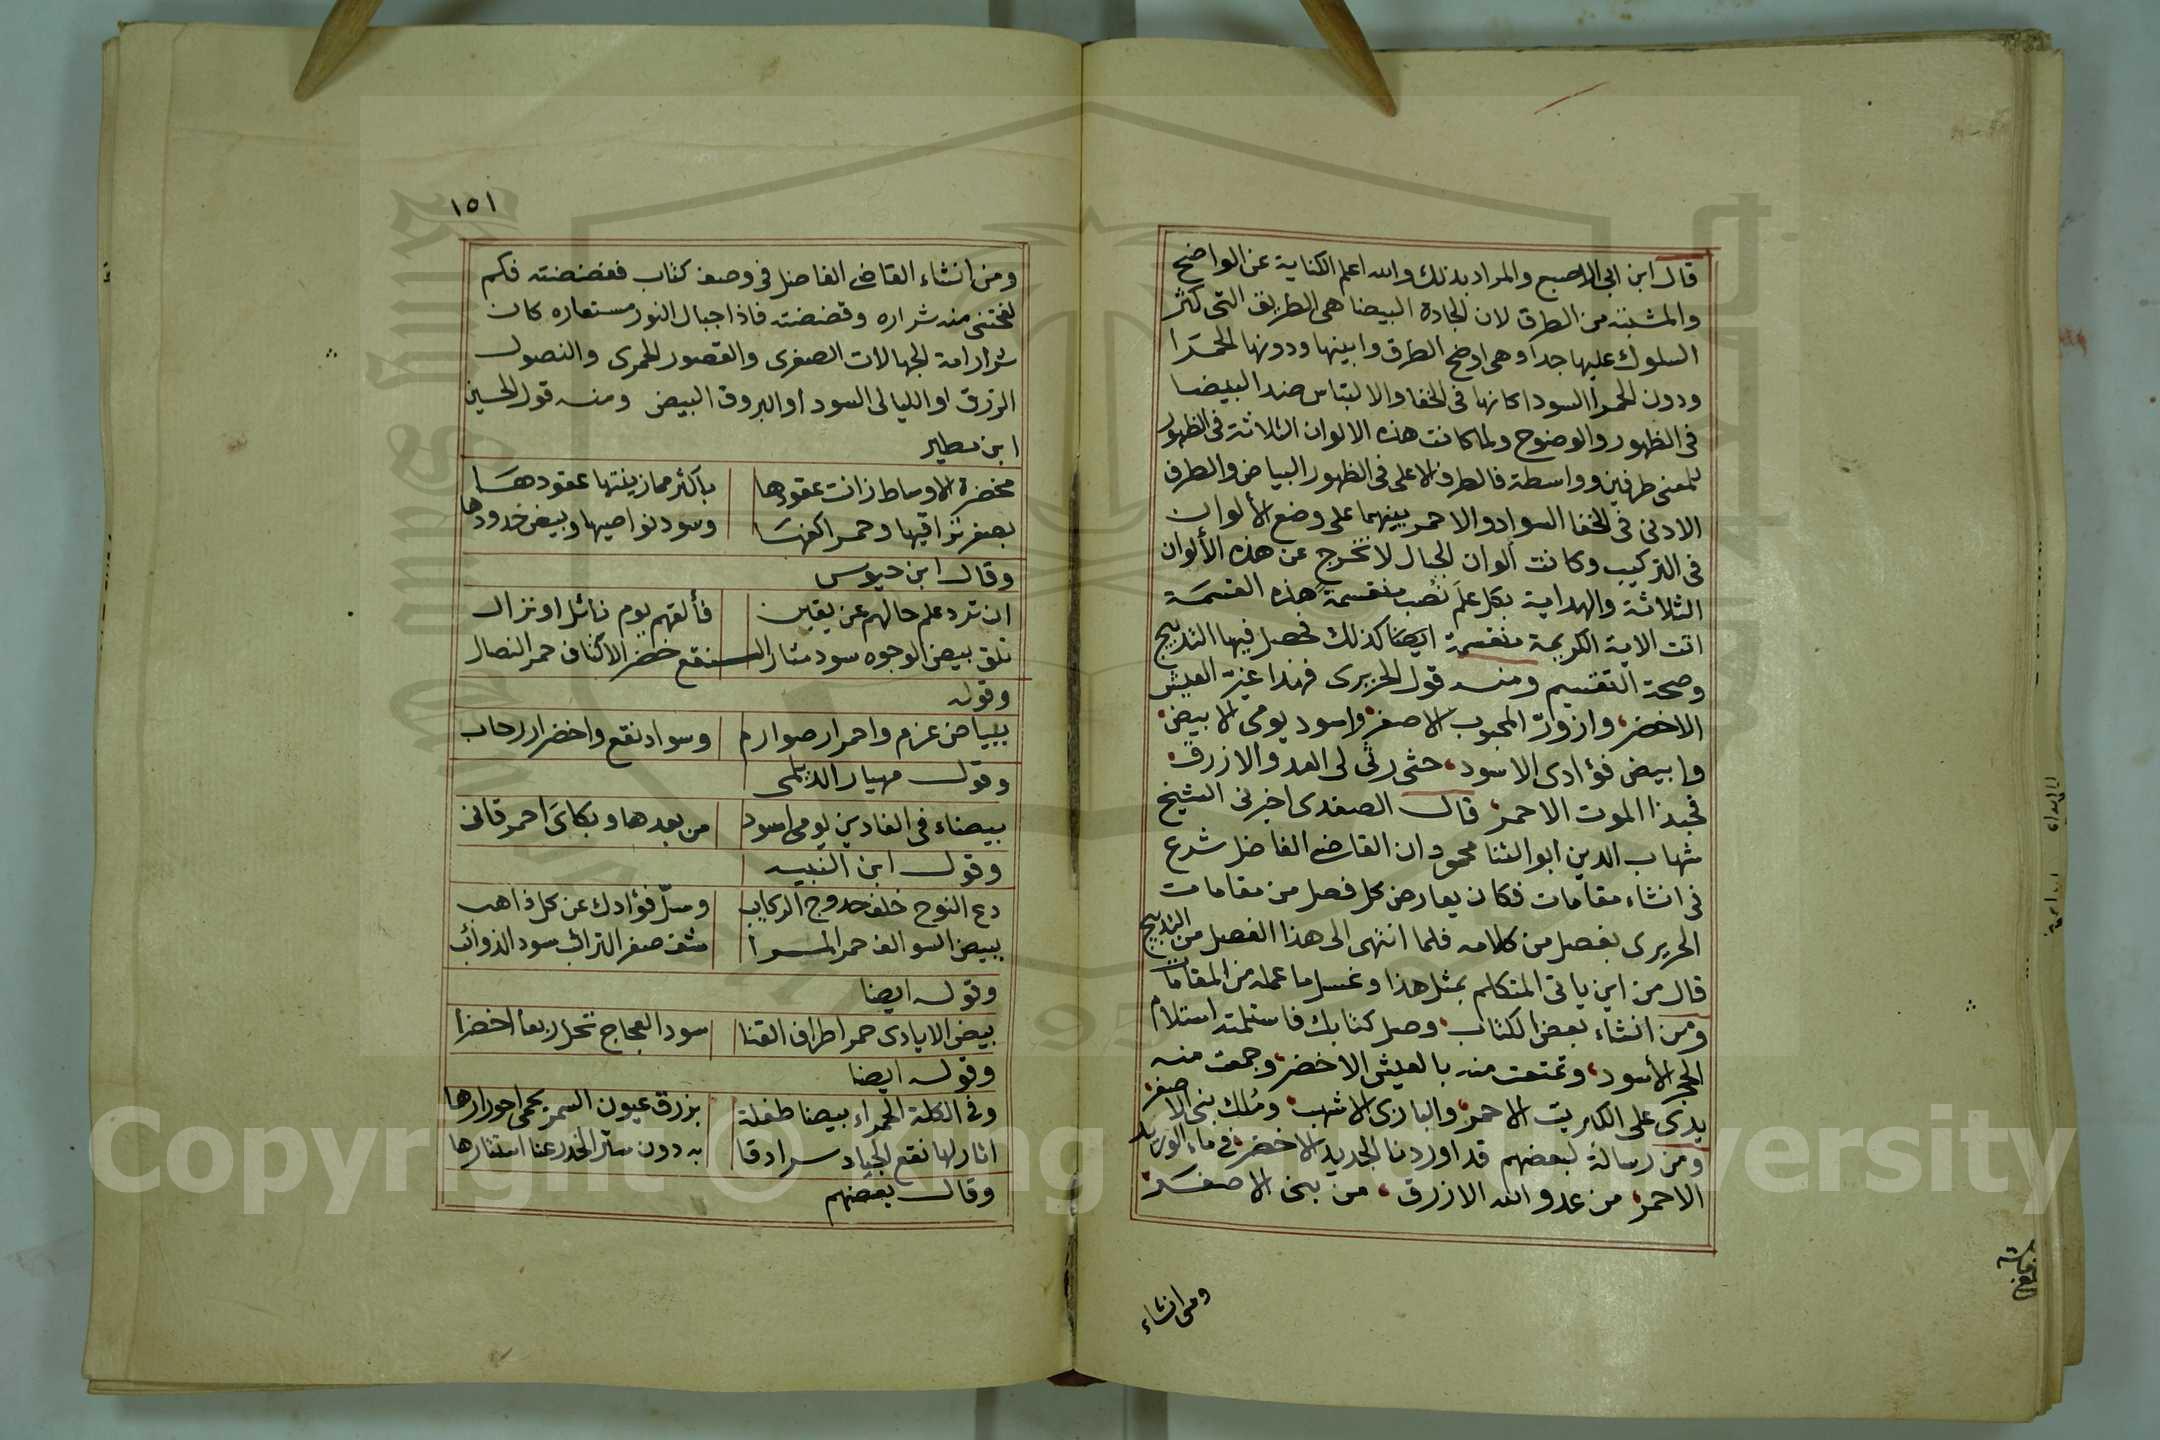 قال ابن ابى الاصبع والمراد بذلك والله اعلم الكناية عن الواضح
والمشتبه من الطرق لان الجادة البيضا هى الطريق التى كثر
السلوك عليها جدا وهى اوضح الطرق وابينها ودونها الحمرا
ودون الحمرا السودا كانها فى الخفا والالتباس ضد البيضا
فى الظهور والوضوح ولما كانت هذه الالوان الثلاثة فى الظهور
للمعنى طرفين وواسطة فالطرف الاعلى فى الظهور البياض والطرف
الادنى فى الخفا السواد والاحمر بينهما على وضع الألوان
فى التركيب وكانت ألوان الجبال لا تخرج عن هذه الألوان
الثلاثة والهداية بكل علم نصب منقسمة هذه القسمة
اتت الاية الكريمة منقسمة ايضا كذلك فحصل فيها التدبيج
وصحة التقسيم ومنه قول الحريرى فمذا غبر العيش
الاخضر، وازورّ المحبوب الاصفر، واسود يومى الابيض،
وابيض فؤادى الاسود، حتى رثى لى العدو الازرق،
فحبذا الموت الاحمر، قال الصفدى اخبرنى الشيخ
شهاب الدين ابو الثنا محمود ان القاضى الفاضل شرع
فى انشاء مقامات فكان يعارض كل فصل من مقامات
الحريرى بفصل من كلامه فلما انتهى الى هذا الفصل من التدبيج
قال من اين ياتى المتكلم بمثل هذا وغسل ما عمله من المقامات
ومن انشاء بعض الكتاب، وصل كتابك فاستلمته استلام
الحجر الأسود، وتمتعت منه بالعيش الاخضر، وجمعت منه
يدى على الكبريت الاحمر، والبازى الاشهب، وملك بنى الاصفر،
ومن رسالة لبعضهم قد اوردنا الحديد الاخضر، فى ماء الوريد
الاحمر، من عدو الله الازرق، من بنى الاصفر،
ومن انشاء
١٥١
ومن انشاء القاضى الفاضل فى وصف كتاب ففضضته فكم
لفحتنى منه شراره وقضضته فاذا جبال النور مستعاره كان
شراراته الجمالات الصفرى والقصور الحمرى والنصول
الزرق او الليالى السود او البروق البيض ومنه قول الحسين
ابن مطير
مخضرة الاوساط زانت عقودها بأكثر مما زينتها عقودها
بصفر تراقيها وحمر اكفها وسود نواصيها وبيض خدودها
وقال ابن حيوس
ان ترد علم حالهم عن يقين فألقهم يوم نائل او نزال
تلق بيض الوجوه سود مثار النقع خضر الاكناف حمر النصال
وقوله
ببياض عزم واحمرار صوارم وسواد نقع واخضرار رحاب
وقول مهيار الديلمى
بيضاء فى الغادين يومى اسود من بعدها وبكاى احمر قانى
وقول ابن النبيه
دع النوح خلف حدوج الركايب وسلّ فؤادك عن كل ذاهب
ببيض السوالف حمر المراشف صفر الترائب سود الذوائب
وقوله ايضا
بيض الايادى حمر اطراف القنا سود العجاج تحل ربعا اخضرا
وقوله ايضا
وفى الكلة الحمراء بيضا طفلة بزرق عيون السمر يحمى احورارها
اثار لها نقع الجياد سرادقا به دون ستر الخدر عنا استتارها
وقال بعضهم
Copyright © King Saud University